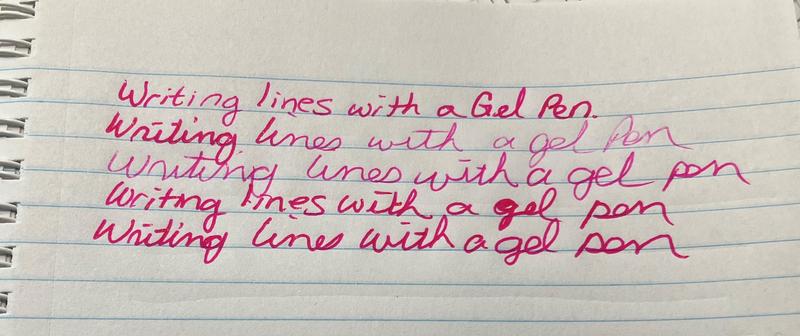 Writing lines with a Gel Pen.
Writing lines with a gel Pen
Writing lines with a gel pen
Writng lines with a gel pen
Writing lines with a gel pen